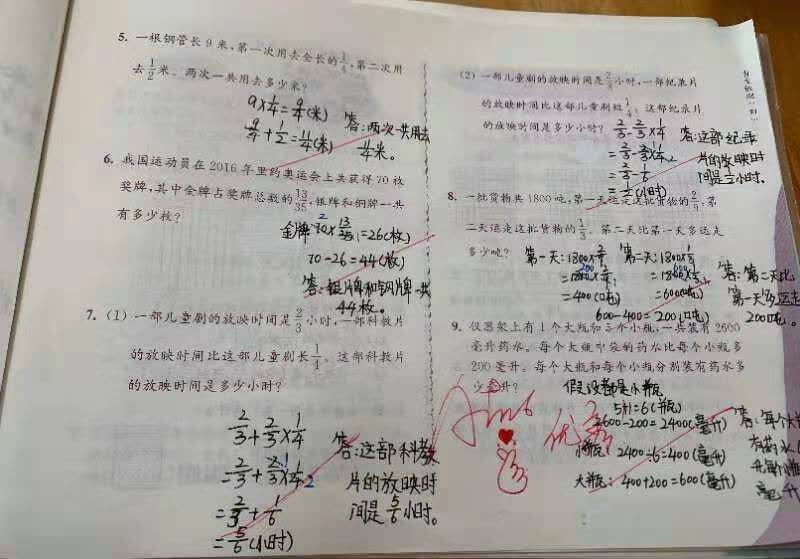 5. 一根钢管长9米,第一次用去全长的1/4,第二次用
去1/2米。两次一共用去多少米?
9×1/4=9/4(米)
9/4+1/2=11/4(米)
答:两次一共用去
11/4米。
6. 我国运动员在2016年里约奥运会上共获得70枚
奖牌,其中金牌占奖牌总数的13/35,银牌和铜牌一共
有多少枚?
金牌 70×13/35=26(枚)
70-26=44(枚)
答:银牌和铜牌一共
44枚。
7. (1) 一部儿童剧的放映时间是2/3小时,一部科教片
的放映时间比这部儿童剧长1/4。这部科教片
的放映时间是多少小时?
2/3+2/3×1/4
=2/3+2/3×1/4
=2/3+1/6
=5/6(小时)
答:这部科教
片的放映时
间是5/6小时。
(2) 一部儿童剧的放映时间是2/3小时,一部纪录片
的放映时间比这部儿童剧短1/4。这部纪录片
的放映时间是多少小时?
2/3-2/3×1/4
=2/3-2/3×1/4
=2/3-1/6
=1/2(小时)
答:这部纪录
片的放映时
间是1/2小时。
8. 一批货物共1800吨,第一天运走这批货物的2/9,第
二天运走这批货物的1/3。第二天比第一天多运走
多少吨?
第一天:1800×2/9
=1800×2/9
=400(吨)
第二天:1800×1/3
=1800×1/3
=600(吨)
600-400=200(吨)
答:第二天比
第一天多运走
200吨。
9. 仪器架上有1个大瓶和5个小瓶,一共装有2600
毫升药水。每个大瓶中装的药水比每个小瓶多
200毫升。每个大瓶和每个小瓶分别装有药水多
少毫升?
假设都是小瓶
5+1=6(瓶)
2600-200=2400(毫升)
小瓶:2400÷6=400(毫升)
大瓶:400+200=600(毫升)
答:每个大
毫升
优秀